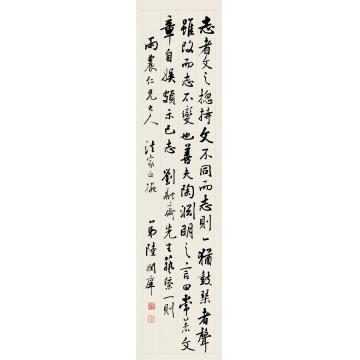 志者文之總持文不同而志則一猶鼓琴者聲
雖改而志不變也善夫陶淵明之言曰常著文
章自娛頗示己志 劉融齋先生藝槩一則
雨農仁兄大人 法家正擬
弟陸潤庠